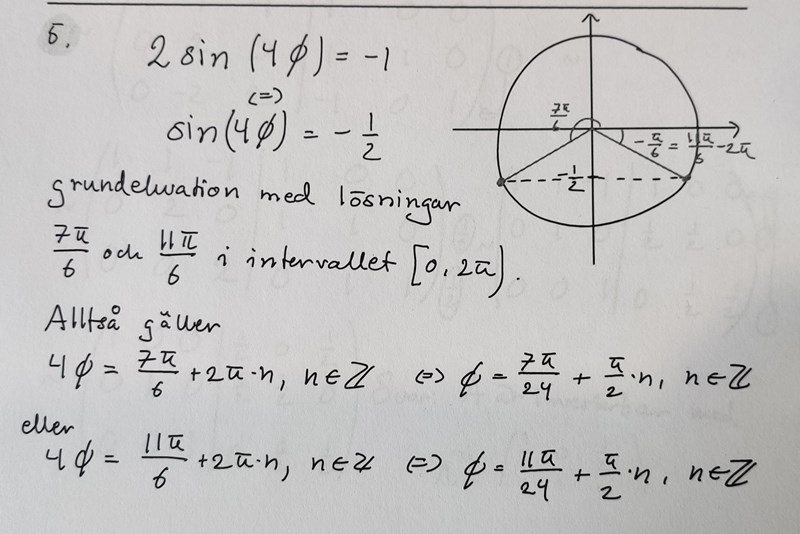 5.
2 sin (4ϕ) = -1
(=)
sin(4ϕ) = - 1/2
7π/6
-π/6 = 11π/6 - 2π
-1/2
grundekvation med lösningar
7π/6 och 11π/6 i intervallet [0, 2π).
Alltså gäller
4ϕ = 7π/6 + 2π·n, n∈ℤ (=) ϕ = 7π/24 + π/2·n, n∈ℤ
eller
4ϕ = 11π/6 + 2π·n, n∈ℤ (=) ϕ = 11π/24 + π/2·n, n∈ℤ